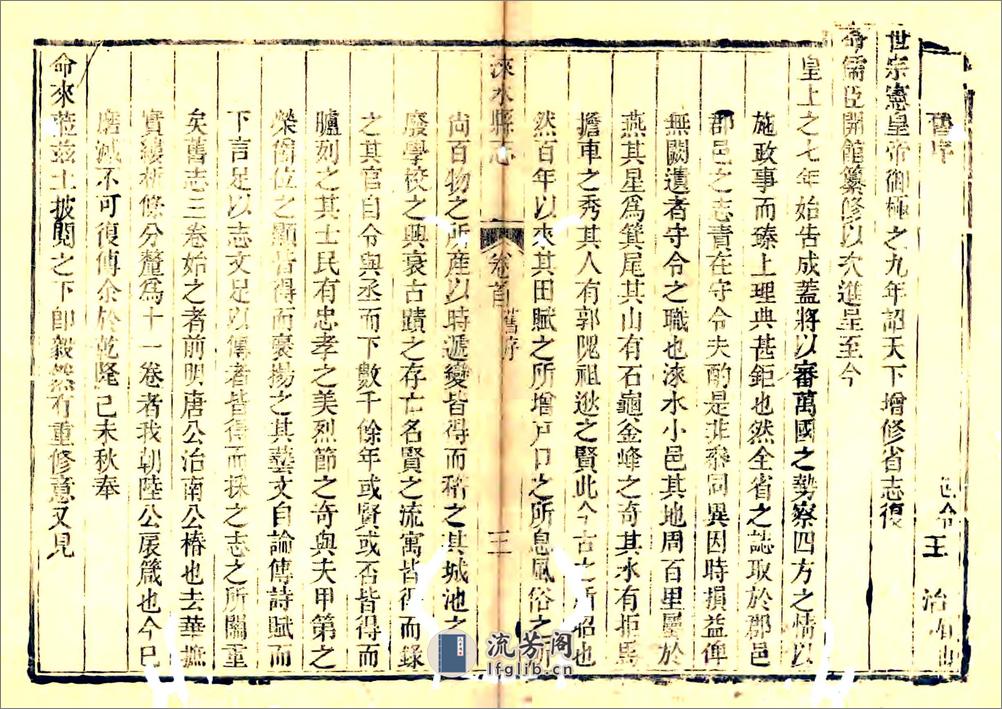 舊序 邑令 王 治
世宗憲皇帝御極之九年詔天下增修省志復
命儒臣開館纂修以次進呈至今
皇上之七年始告成蓋將以審萬國之勢察四方之情以
施政事而臻上理典甚鉅也然全省之誌取於郡邑
郡邑之志責在守令夫酌是非參同異因時損益俾
無闕遺者守令之職也淶水小邑其地周百里屬於
燕其星爲箕尾其山有石龜釜峰之奇其水有拒馬
擔車之秀其人有郭隗祖逖之賢此今古之所昭也
然百年以來其田賦之所增戸口之所息風俗之所
淶水縣志 卷首 舊序 三
尚百物之所産以時遞變皆得而稽之其城池之
廢學校之興衰古蹟之存亡名賢之流寓皆得而錄
之其官自令與丞而下數千餘年或賢或否皆得而
臚列之其士民有忠孝之美烈節之奇與夫甲第之
榮簡位之顯皆得而褒揚之其藝文自論傳詩賦而
下言足以志文足以傳者皆得而採之志之所關重
矣舊志三卷始之者前明唐公治南公椿也去華摭
實縷析條分釐爲十一卷者我朝陸公扆箴也今已
磨滅不可復傳余於乾隆己未秋奉
命來蒞茲土披閱之下卽毅然有重修意又見
流芳阁
lfglib.cn